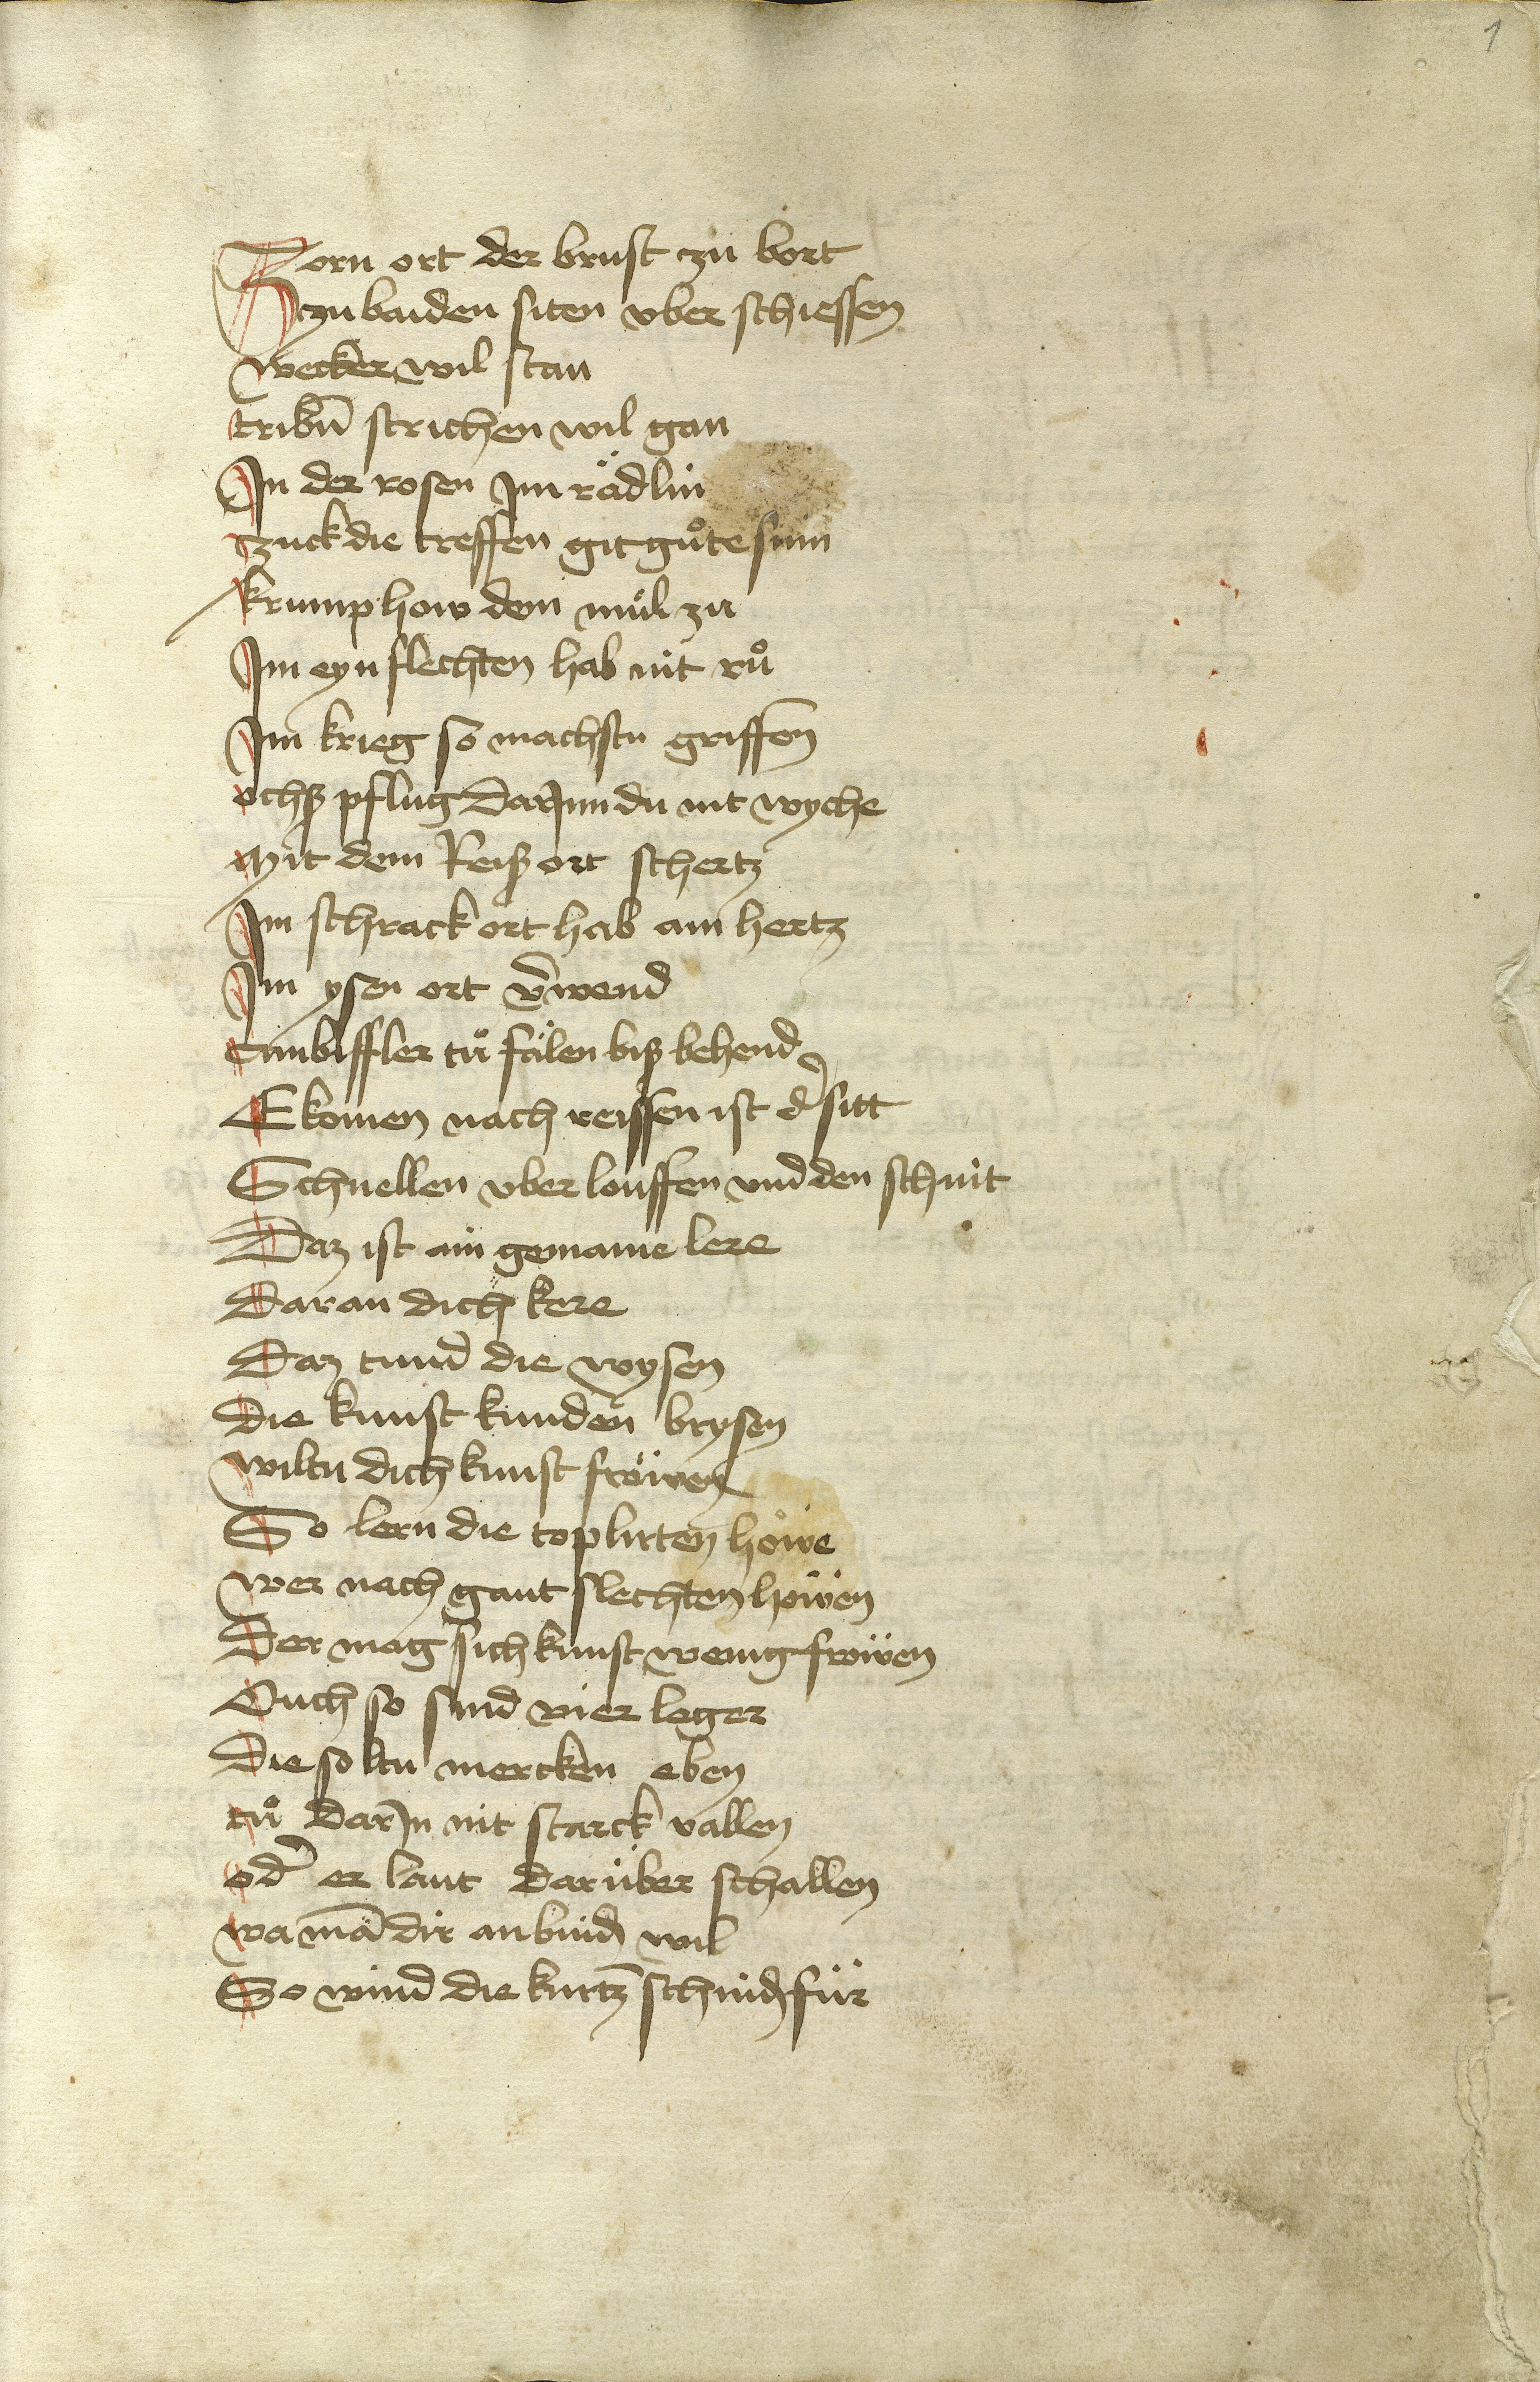 1
Zorn ort der brust zu bort
zu baiden siten vber schiessen
wecker wil stan
tribñ strichen wil gan
In der rosen Im rädlin
zuck die treffen git gůte sinn
krump how dem mül zu
Im eyn flechten hab nit rů
Im krieg so machstu griffen̄
ochß pflug dar Inn du nit wyche
Mit dem Reiß ort schertz
Im schrack ort hab ain hertz
Im ysen ort v̄wend
Tanbiffler tů fälen biß behend
Ekomen nach reissen ist d̾ sitt
Schnellen vber louffen vnd den schnit
Daz ist ain gemaine lere
Dar an dich kere
Daz tund die wysen
Die kunst kunden brysen
wiltu dich kunst fröwen
So lern die toplirten höwe
wer nach gant slechten höwen
Der mag sich kunst wenig fröwen
Ouch so sind vier leger
Die soltu mercken eben
tů dar In nit starck vallen
od̾ er laut darüber schallen
wa mā dir anbindn̄ wil
So wind die kurtz̄ schnid für